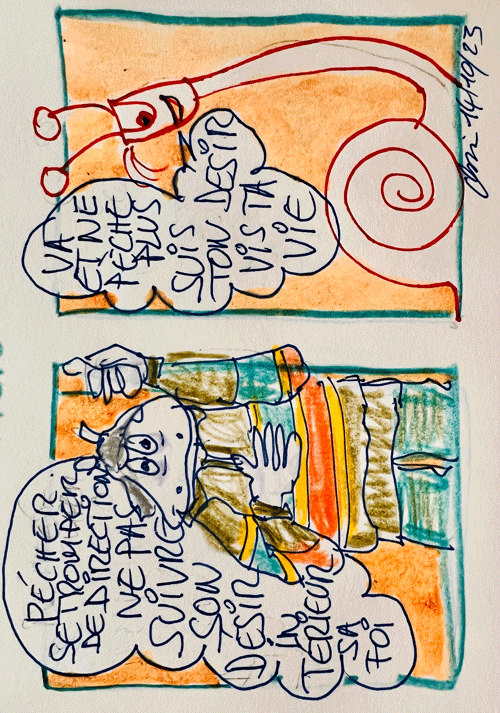 PÉCHER
SE TROMPER
DE DIRECTION
NE PAS
SUIVRE
SON
DÉSIR
IN
TERIEUR
SA
FOI
VA
ET NE
PÉCHE
PLUS
SUIS
TON DESIR
VIS TA
VIE
14/10/23